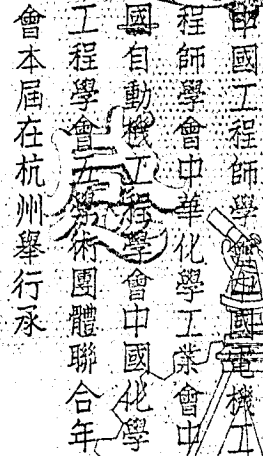 中國工程師學會中國電機工
程師學會中華化學工業會中
國自動機工程學會中國化學
工程學會五學術團體聯合年
會本屆在杭州舉行承